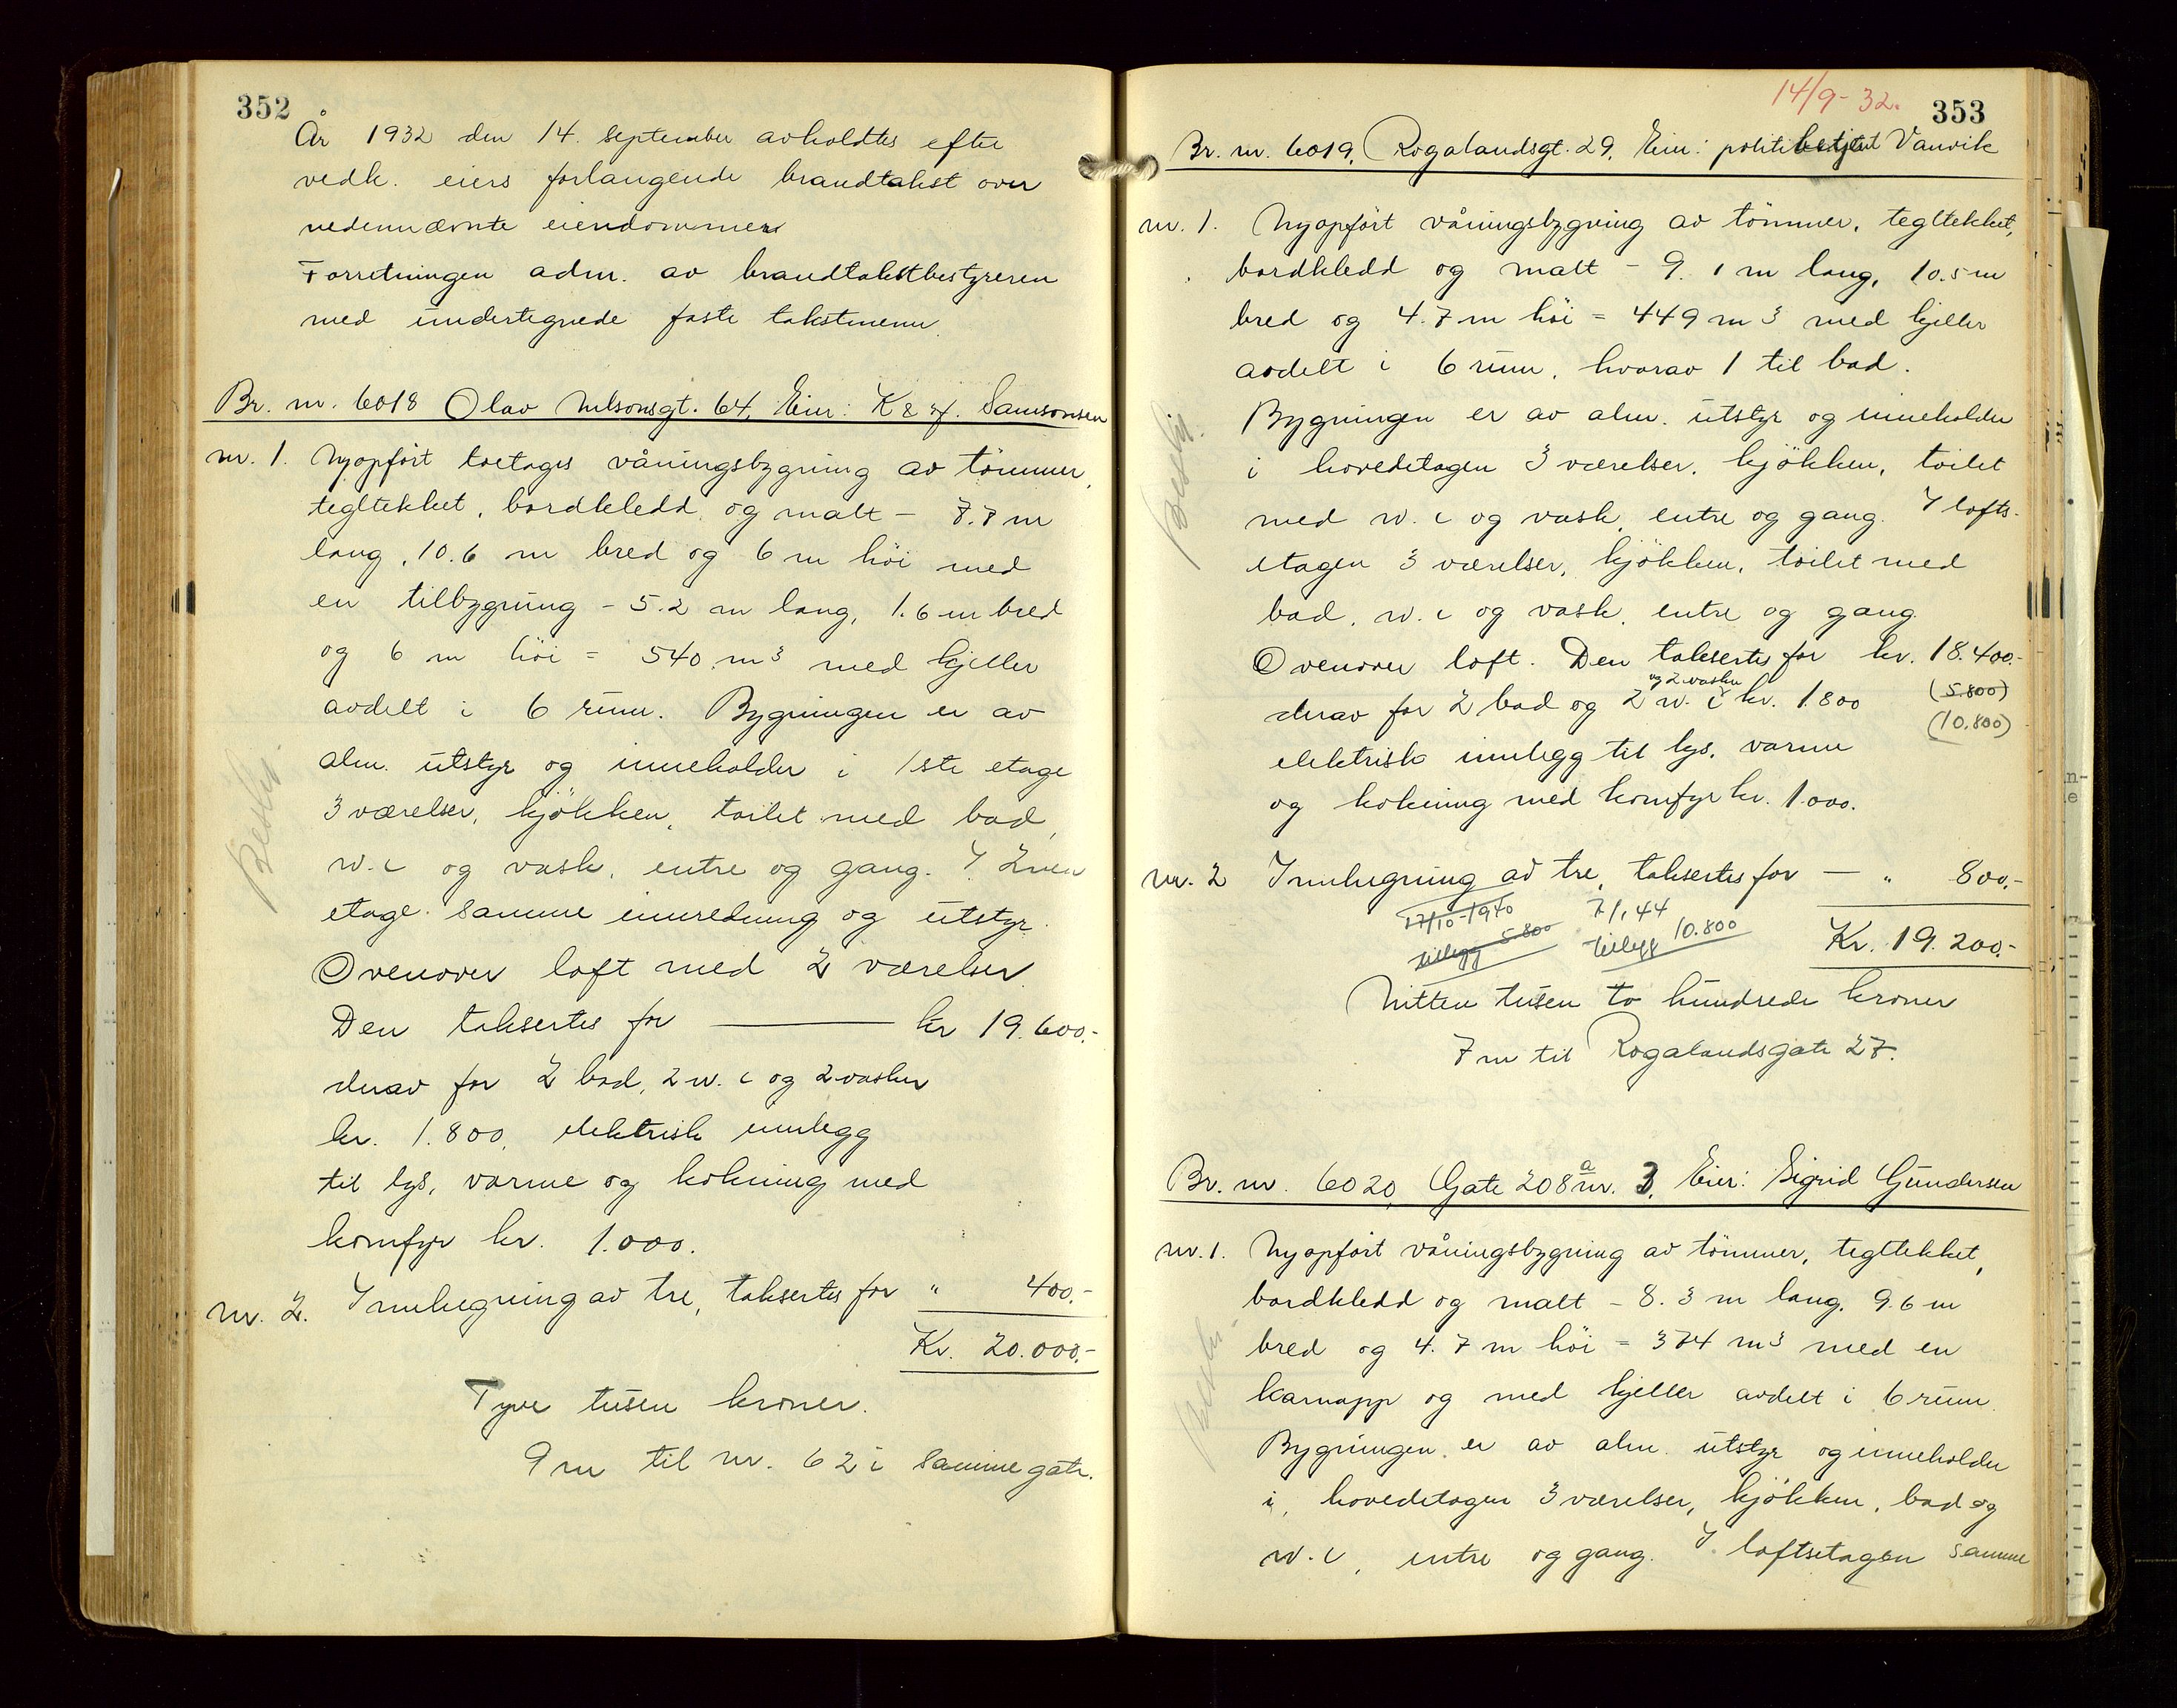 352
År 1932 den 14. september avholdtes efter
vedk. eiers forlangende brandtakst over
nedennævnte eiendommer
Forretningen adm. av brandtakstbestyreren
med undertegnede faste takstmenn.
Br. nr. 6018 Olav Nilsonsgt. 64, Eier: K & Samsonsen
nr. 1. Nyopført toetages våningsbygning av tömmer,
tegltekket, bordkledd og malt - 7.7 m
lang, 10.6 m bred og 6 m höi med
en tilbygning - 5.2 m lang, 1.6 m bred
og 6 m höi = 540 m3 med kjeller
avdelt i 6 rum. Bygningen er av
alm. utstyr og inneholder i 1ste etage
3 værelser, kjökken, toilet med bad,
w.c og vask, entre og gang. I 2nen
etage samme innredning og utstyr.
Ovenover loft med 2 værelser.
Den taksertes for — kr 19.600.-
derav for 2 bad, 2 w.c og 2 vasker
kr. 1.800, elektrisk innlegg
til lys, varme og kokning med
komfyr kr. 1.000.
nr. 2. Innhegning av tre, taksertes for " 400.-
Kr. 20.000.-
Tyve tusen kroner.
9 m til nr. 62 i samme gate.
Besikt.
14/9-32.
353
Br. nr. 6019, Rogalandsgt. 29, Eier: politibetjent Vanvik
nr. 1. Nyopfört våningsbygning av tömmer, tegltekket,
bordkledd og malt - 9.1 m lang, 10.5 m
bred og 4.7 m höi = 449 m3 med kjeller
avdelt i 6 rum, hvorav 1 til bad.
Bygningen er av alm. utstyr og inneholder
i hovedetagen 3 værelser, kjökken, toilet
med w.c og vask, entre og gang. I lofts-
etagen 3 værelser, kjökken, toilet med
bad, w.c og vask, entre og gang.
Ovenover loft. Den taksertes for kr. 18.400.-
og 2 vasker
derav for 2 bad og 2 w.c kr. 1.800 (5.800)
(10.800)
elektrisk innlegg til lys, varme
og kokning med komfyr kr. 1.000.
nr. 2 Innhegning av tre, taksertes for — " 800.-
17/10-1940 7/1 44
tillegg 5.800 tillegg 10.800 Kr. 19.200.-
Nitten tusen to hundrede kroner
7 m til Rogalandsgate 27.
Besikt.
Br. nr. 6020, Gate 208a nr. 3, Eier: Sigrid Gundersen
nr. 1. Nyopfört våningsbygning av tömmer, tegltekket,
bordkledd og malt - 8.3 m lang, 9.6 m
bred og 4.7 m höi = 374 m3 med en
karnapp og med kjeller avdelt i 6 rum.
Bygningen er av alm. utstyr og inneholder
i hovedetagen 3 værelser, kjökken, bad og
w.c, entre og gang. I loftsetagen samme
Besikt.